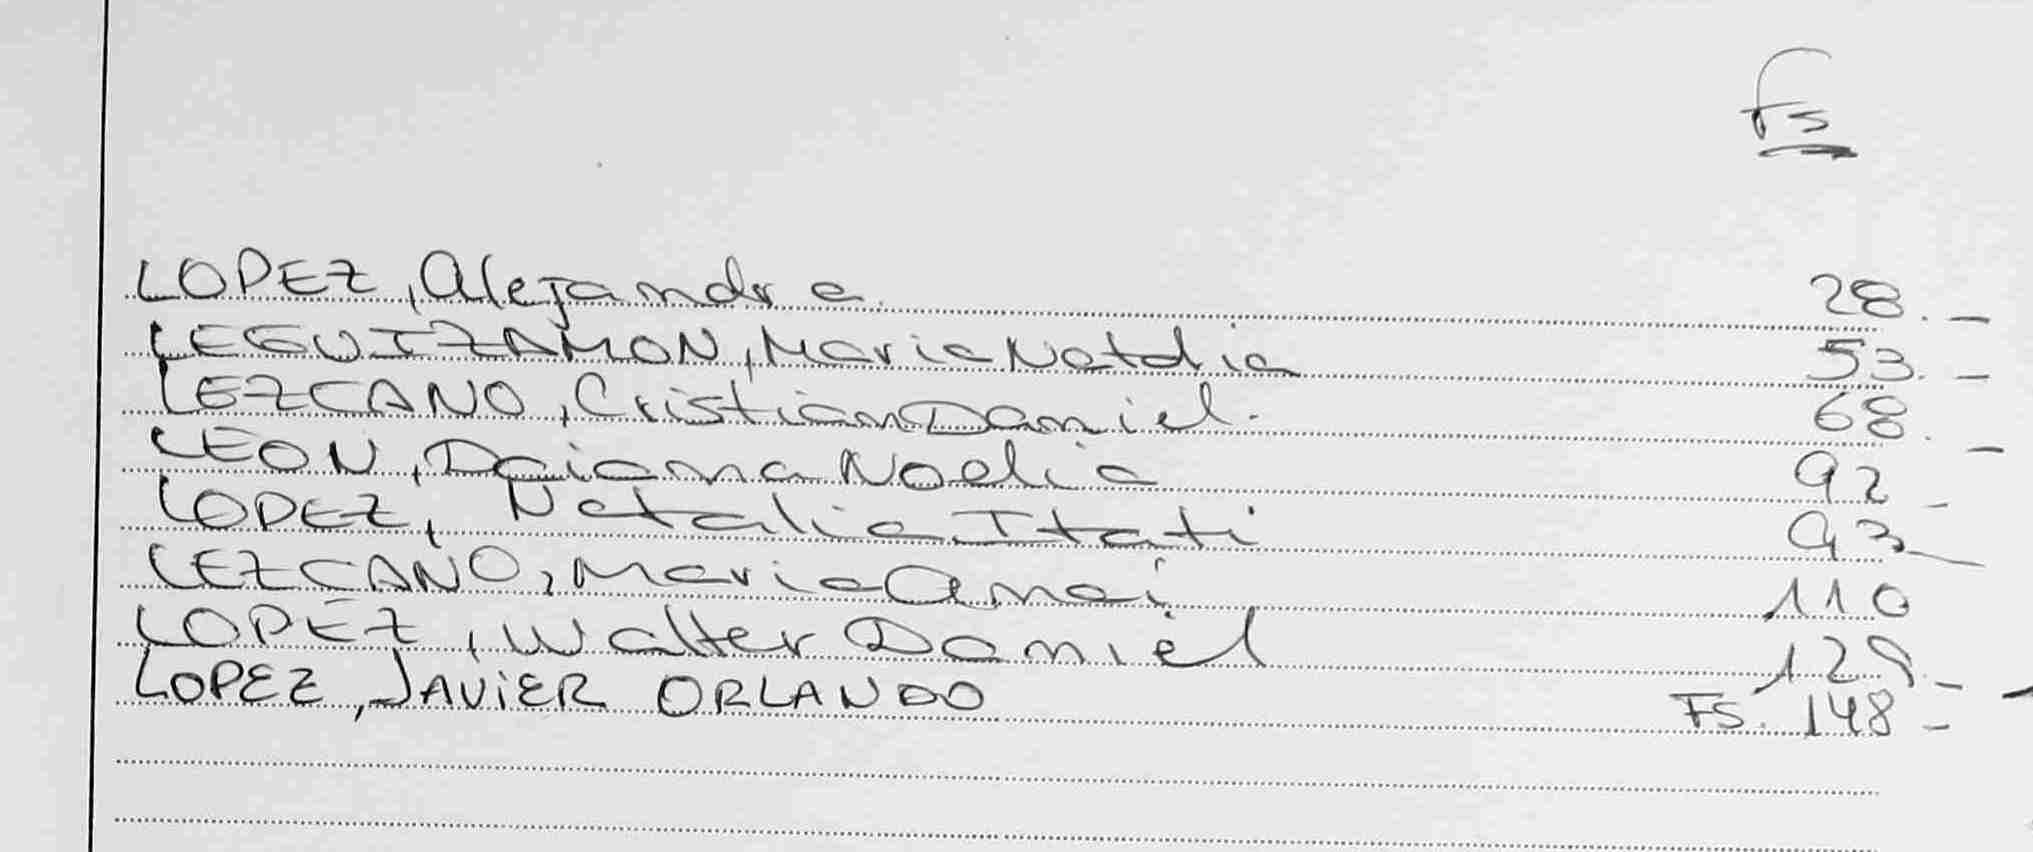 Fs
LOPEZ, Alejandra 28.-
LEGUIZAMON, Maria Natalia 53.-
LEZCANO, Cristian Daniel. 68.-
LEON, Daiana Noelia 92-
LOPEZ, Natalia Itati 93-
LEZCANO, Maria Anai 110
LOPEZ, Walter Daniel 129.-
LOPEZ, JAVIER ORLANDO Fs. 148-